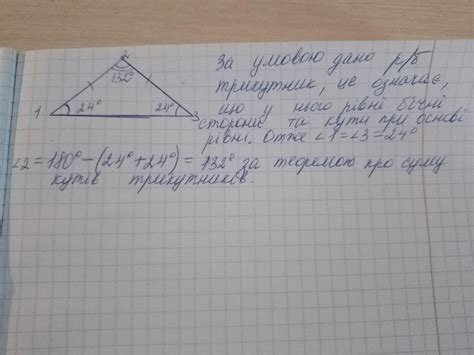 2
132°
1
24°
24°
3
За умовою дано р/б
трикутник, це означає,
що у нього рівні бічні
сторони та кути при основі
рівні. Отже ∠1=∠3=24°
∠2=180°-(24°+24°)=132° за теоремою про суму
кутів трикутників.